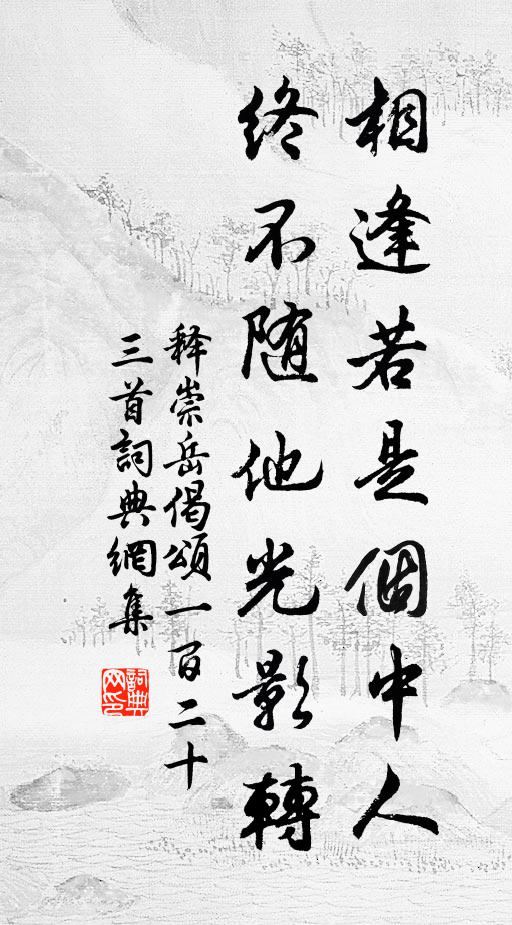 相逢若是個中人
終不随他光影轉
释崇岳偈頌一百二十
三首詞典網集
詞典
网印